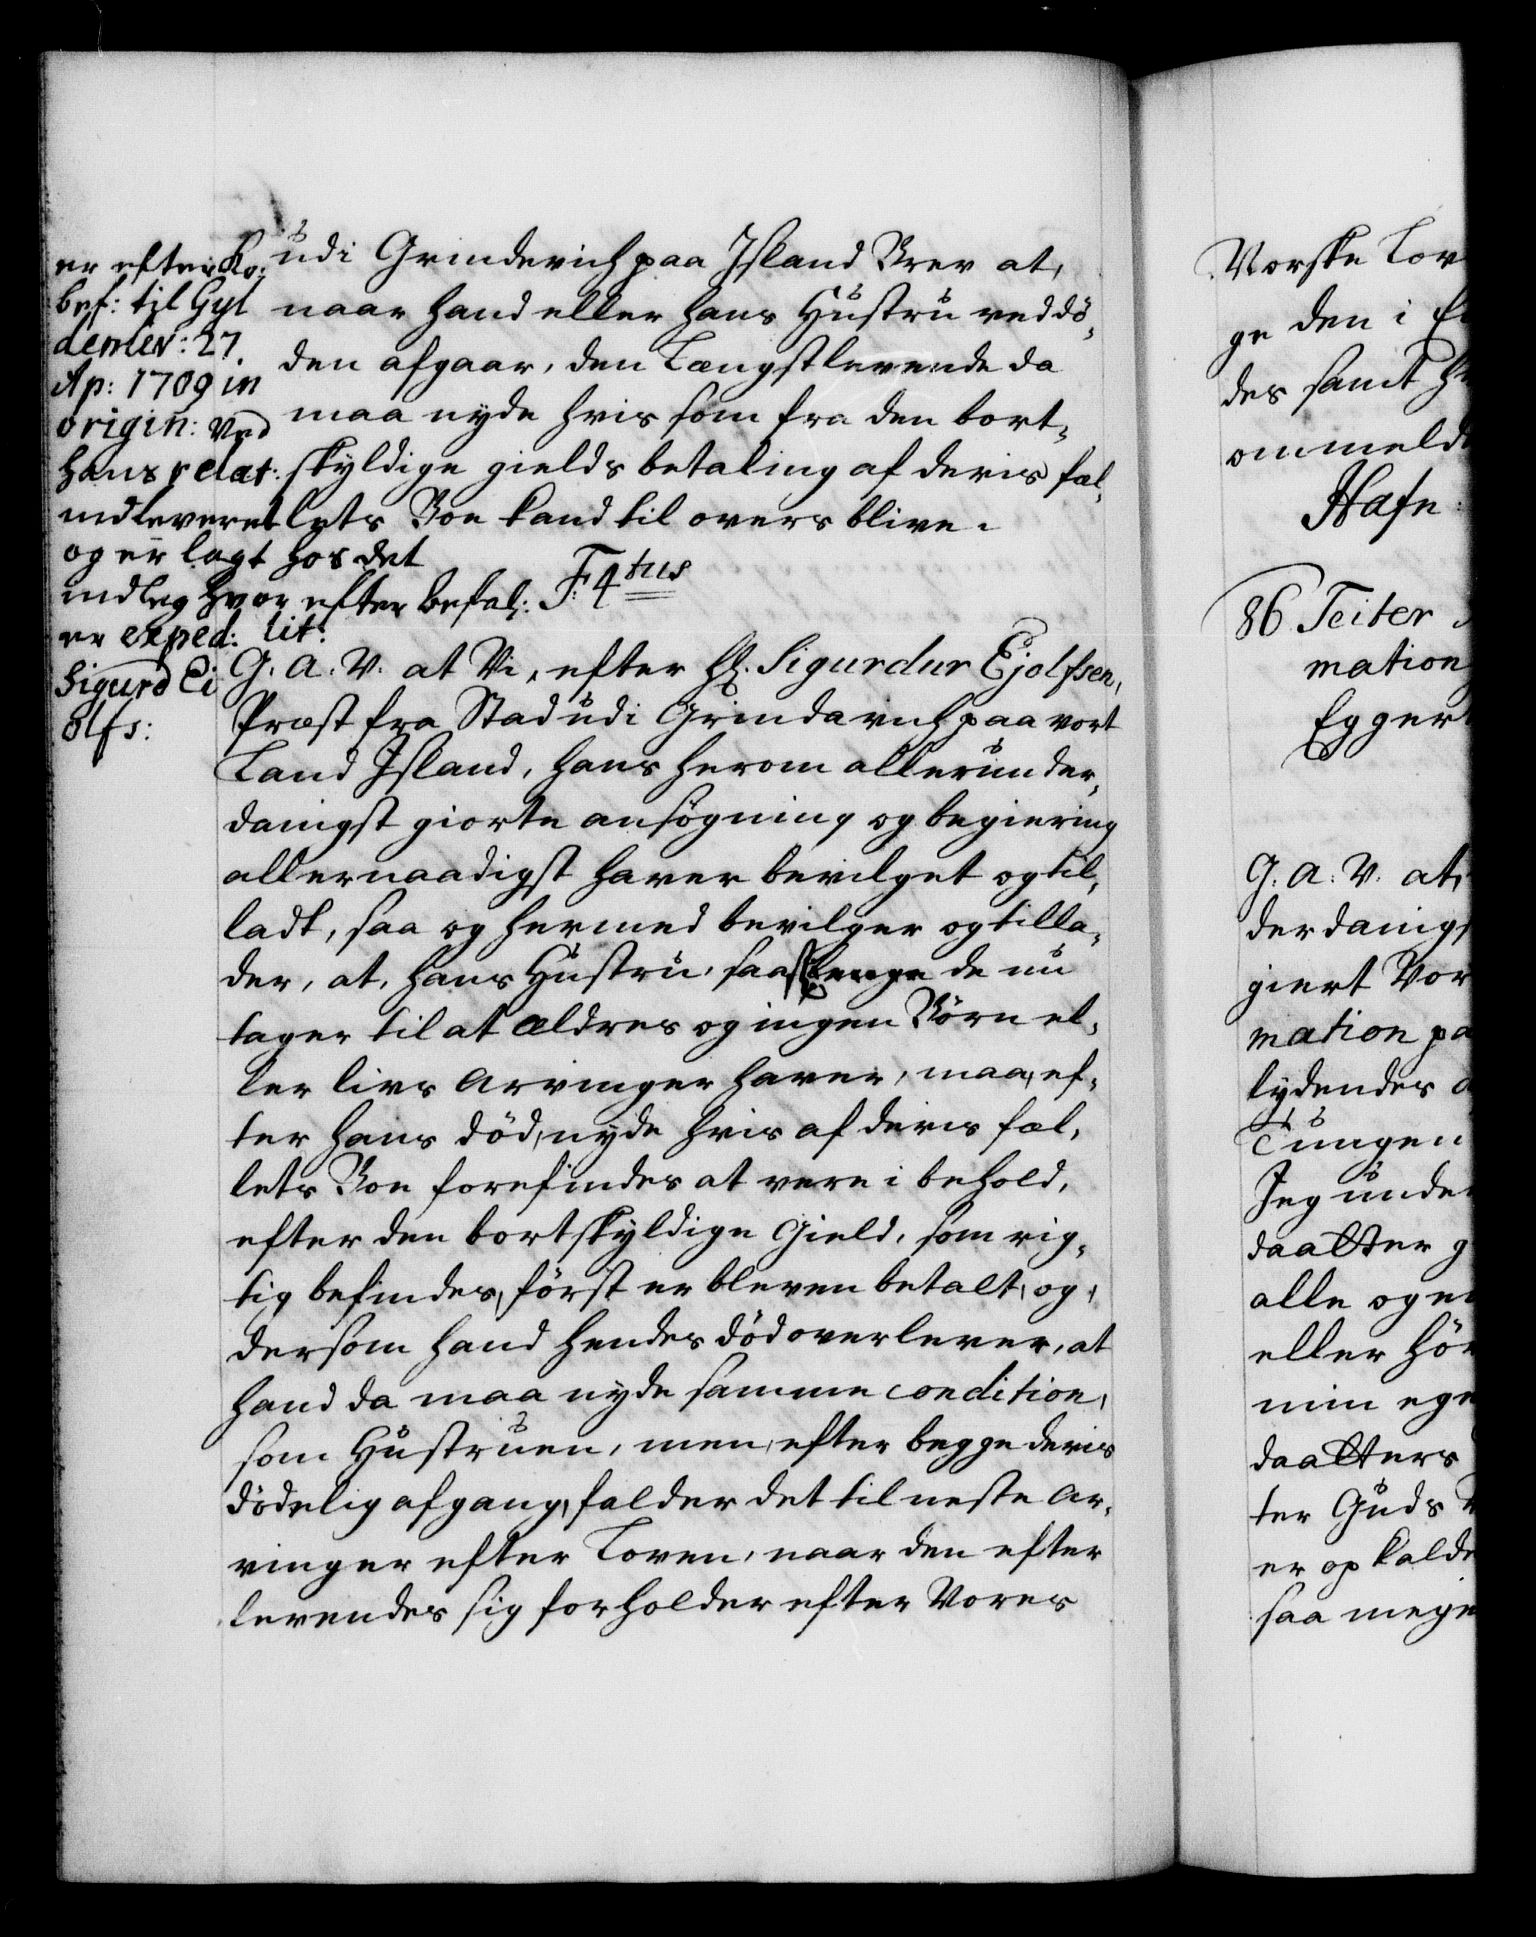 er efter Ko:
bef: til Gyl
denlev: 27.
Ap: 1709 in
origin: ved
hans relat:
indleveret
og er lagt hos det
indleg hvor efter befal:
er exped: lit:
Sigurd Ei
olfs:
udi Grinderich paa Island Brev at,
naar hand eller hans Hustru ved dö-
den afgaar, den Længstlevende da
maa nyde hvis som fra den bort-
skyldige gields betaling af deris fæl-
lets Boe kand til overs blive.
F. 4tus
G. A. V. at Vi, efter Hr. Sigurdur Ejolfsen,
Præst fra Stad udi Grindavich paa vort
Land Island, hans herom allerunder-
danigst giorte ansögning og begiering
allernaadigst haver bevilget og til-
ladt, saa og hermed bevilger og tilla-
der, at, hans Hustru, saa længe de nu
tager til at ældres og ingen Börn el-
ler livs Arvinger haver, maa, ef-
ter hans död, nyde hvis af deris fæl-
lets Boe forefindes at vere i behold,
efter den bortskyldige Gield, som rig-
tig befindes, först er bleven betalt, og,
dersom hand hendes död overlever, at
hand da maa nyde samme condition,
som Hustruen, men, efter begge deris
dödelig afgang, falder det til neste Ar-
vinger efter Loven, naar den efter
levendes sig forholder efter Vores
Norske Lov
ge den i
des samt
ommeldt
Hafn:
86 Teiter
mation
Egger
G. A. V. at,
derdanigs
giert Vor
mation pa
lydendes
Tungen
Jeg unde
daatter
alle og en
eller hör
min ege
daatters
ter Guds
er op kald
saa mege